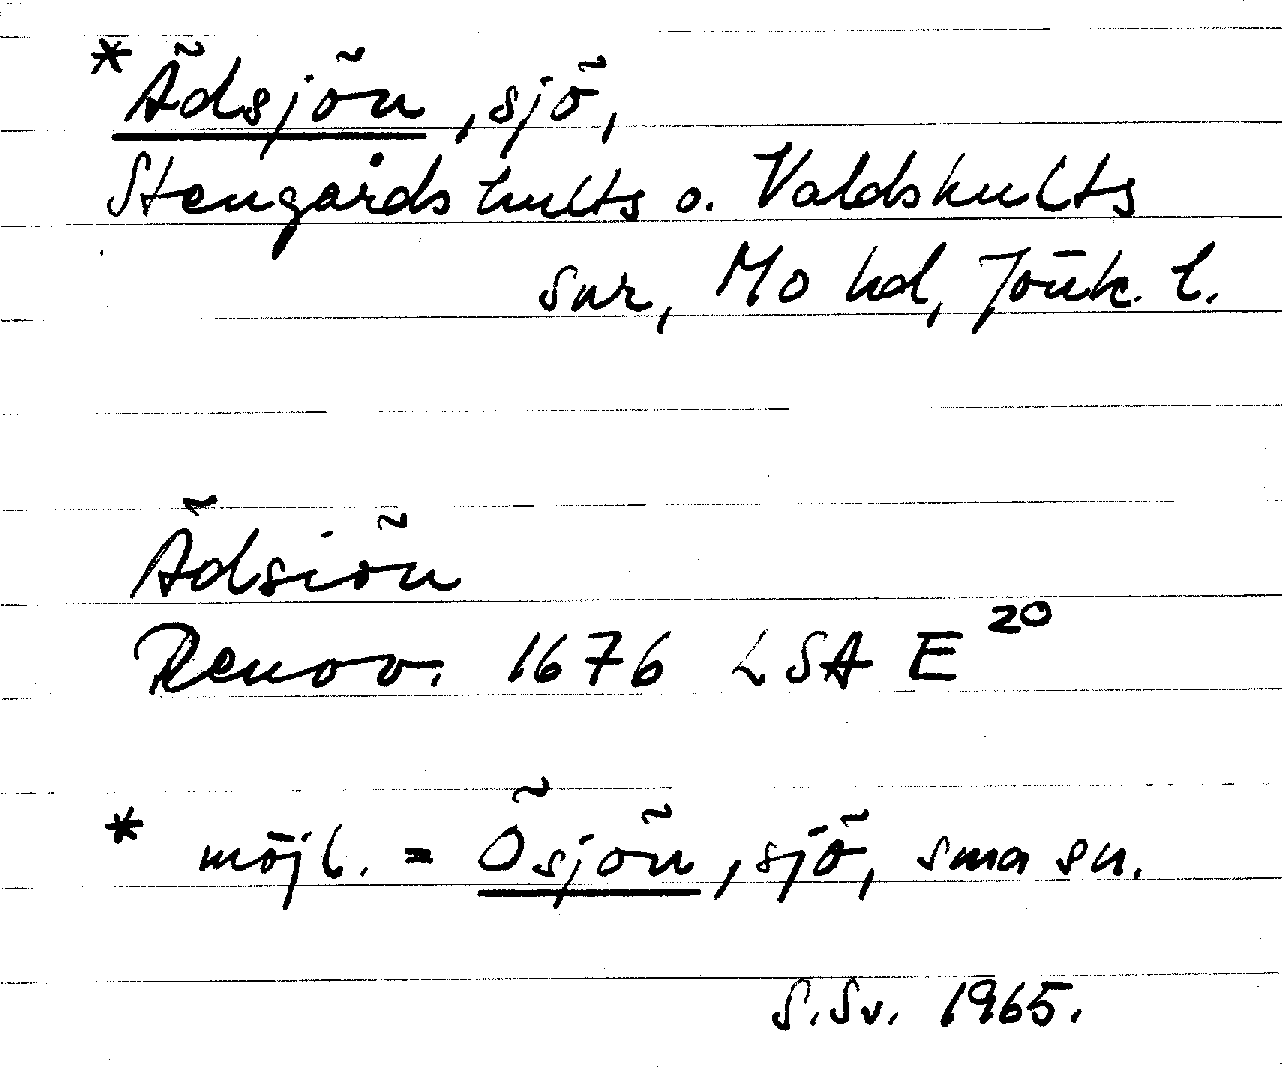 * Ädsjön, sjö,
Stengårdshults o. Valdshults
snr, Mo hd, Jönk. l.
Ädsiön
Renov. 1676 LSA E²⁰
* möjl. = Ösjön, sjö, sma sn.
S.Sv. 1965.